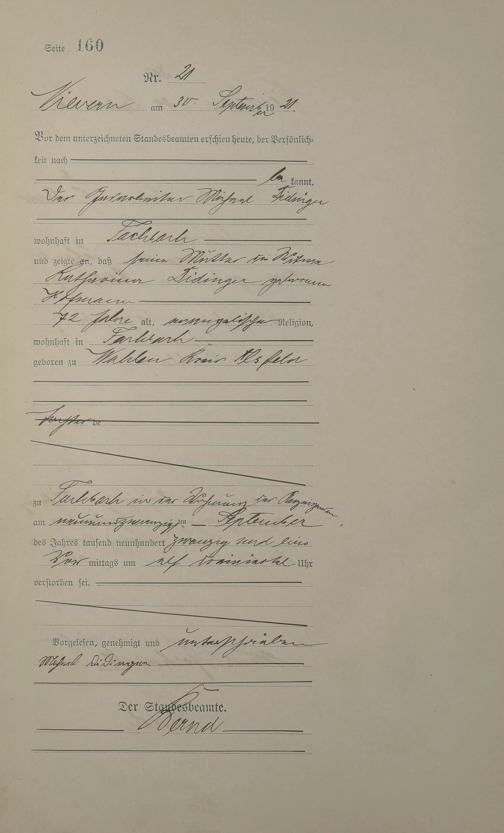 Seite 160
Nr. 21
Nievern am 30 September 1921.
Vor dem unterzeichneten Standesbeamten erschien heute, der Persönlich-
keit nach
be kannt,
Der Michael Didinger
wohnhaft in Fachbach
und zeigte an, daß seine Mutter die Witwe
Katharina Didinger geborene
Hofmann
72 Jahre alt, evangelischer Religion,
wohnhaft in Fachbach
geboren zu Wahlen Kreis Alsfeld
Tochter de
zu Fachbach in der Wohnung des Anzeigenden
am neunundzwanzig ten September
des Jahres tausend neunhundert zwanzig und eins
Vor mittags um elf dreiviertel Uhr
verstorben sei.
Vorgelesen, genehmigt und unterschrieben
Michael Didinger
Der Standesbeamte.
Bernd